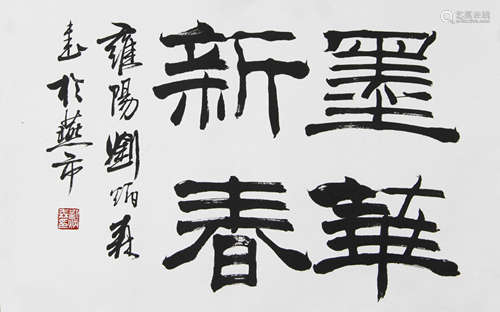 墨華
新春
雍陽劉炳森
書於燕市